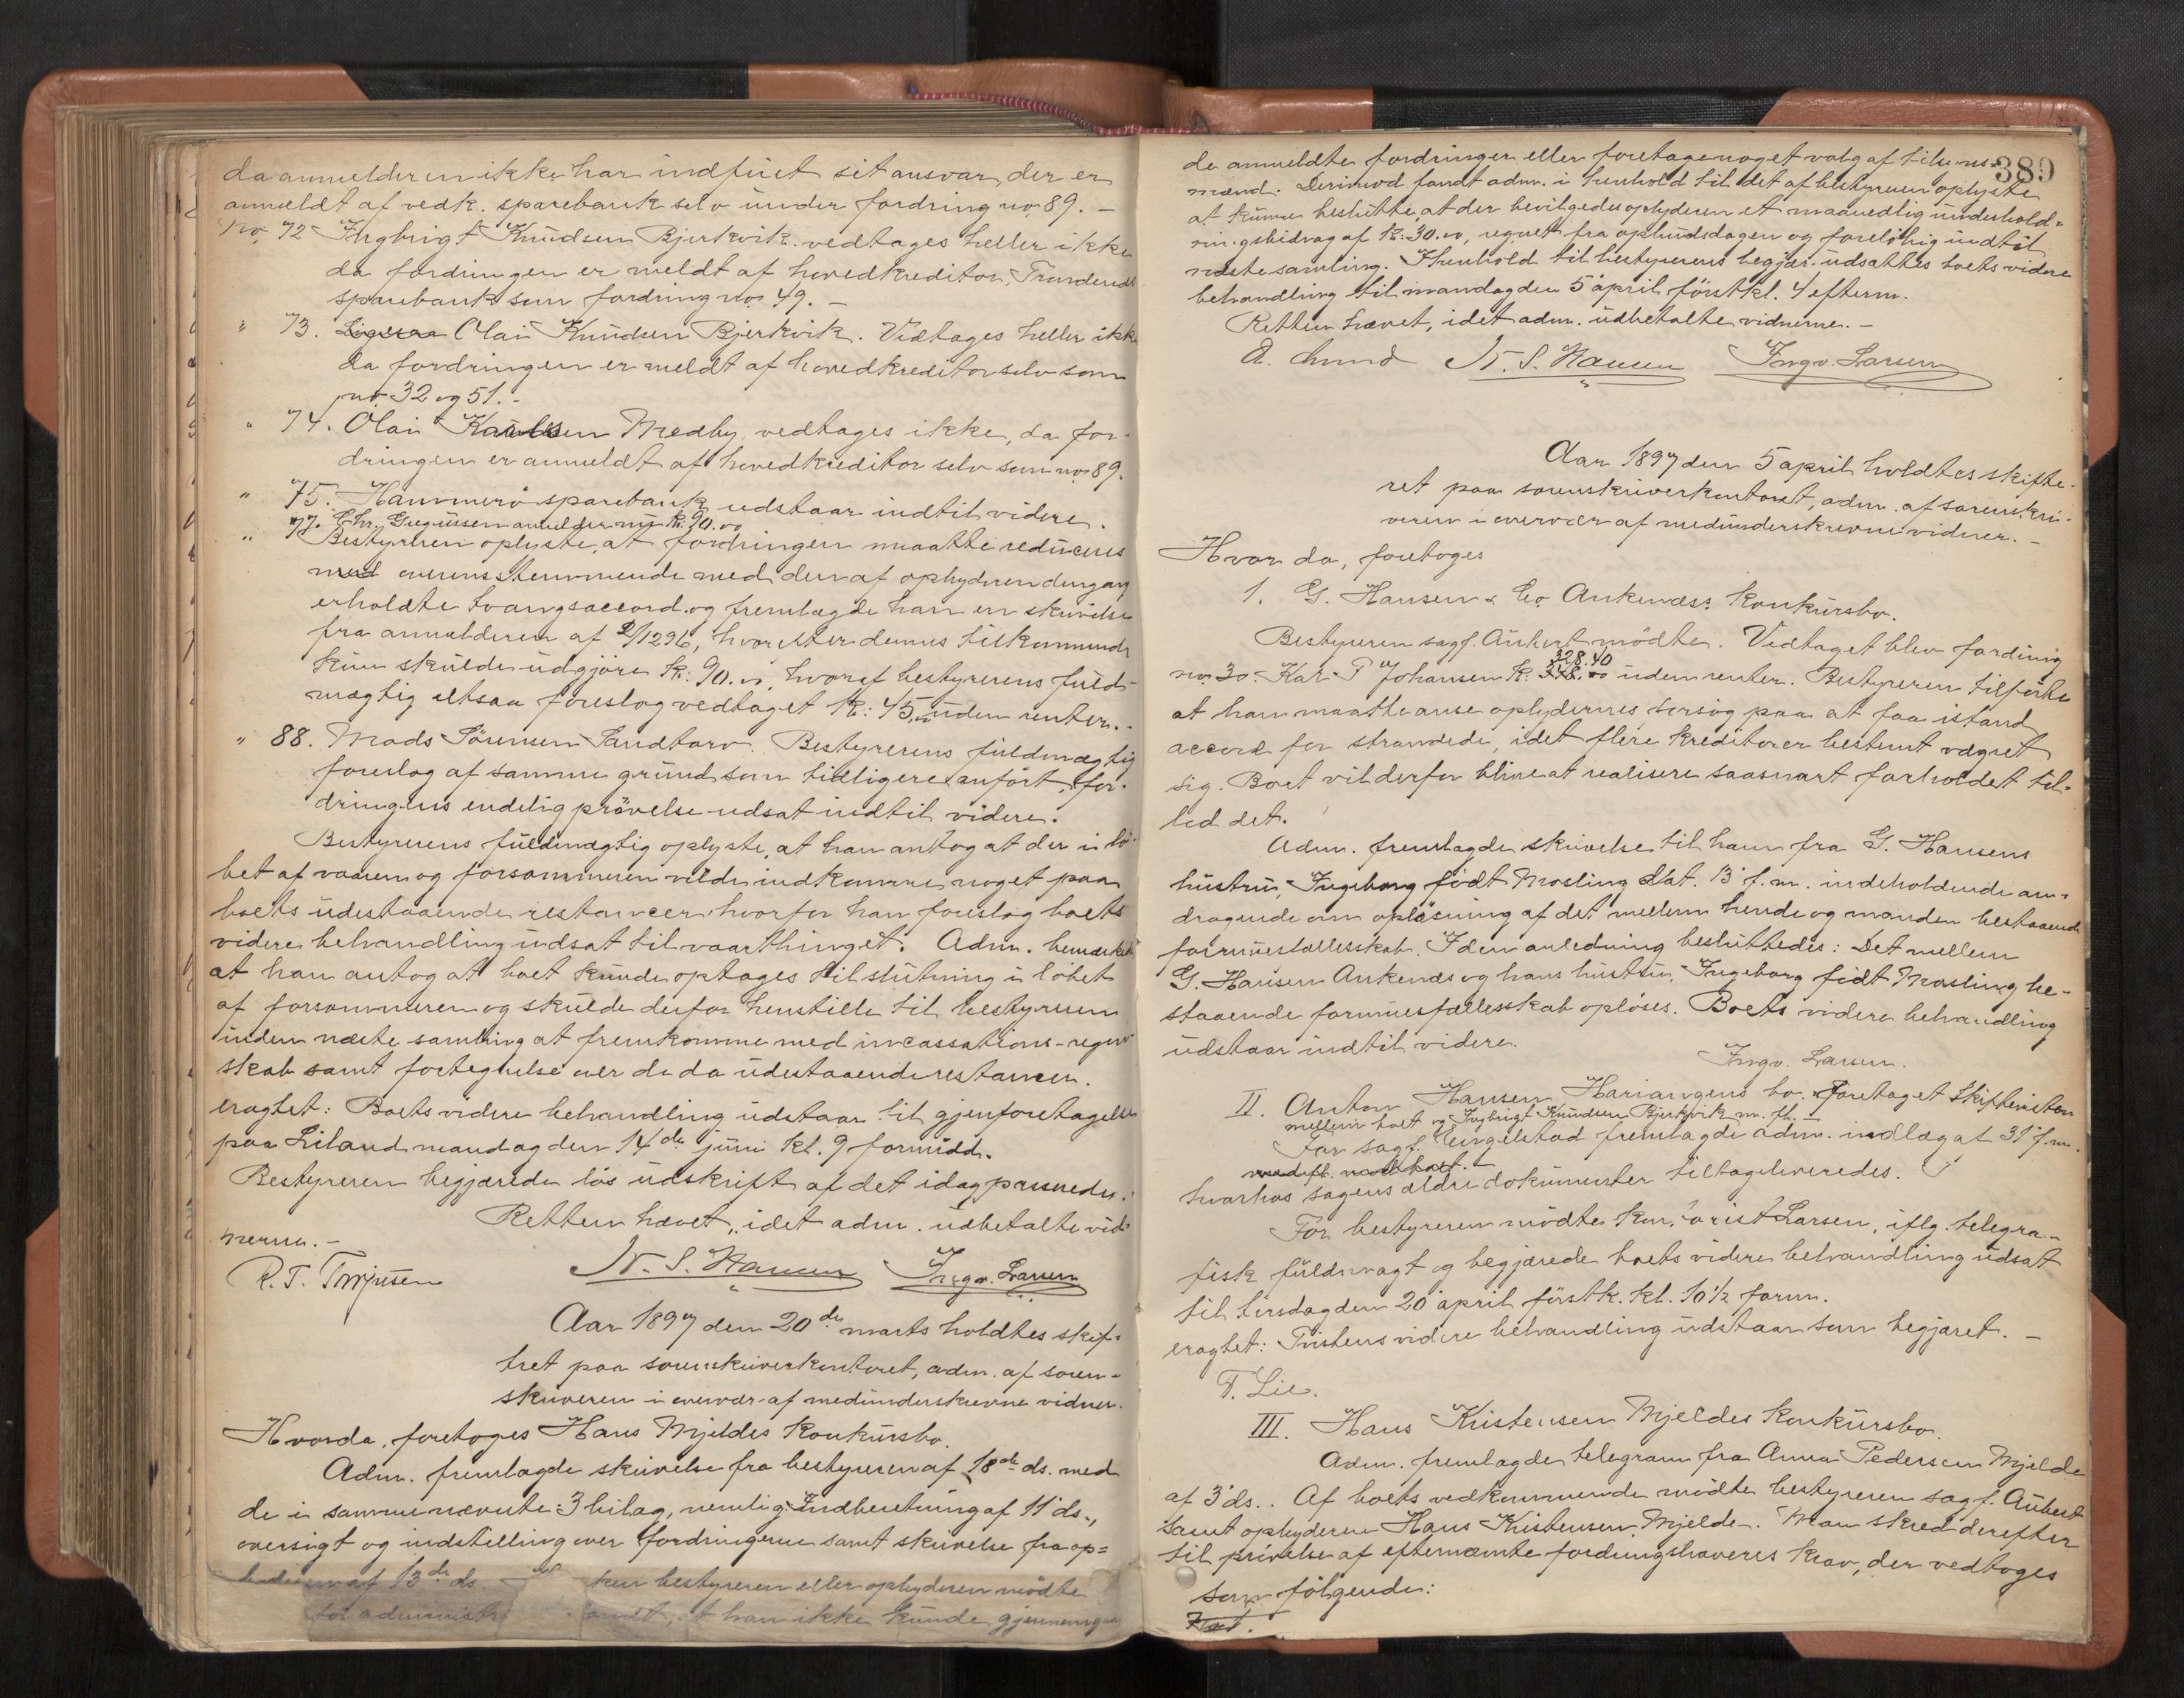 da anmelderen ikke har indfriet sit ansvar, der er
anmeldt af vedk. sparebank selv under fordring no 89. –
No. 72 Ingbrigt Knudsen Bjerkvik. vedtages heller ikke
da fordringen er meldt af hovedkreditor, Trondenes
sparebank som fordring no 49. –
" 73. Olai Knudsen Bjerkvik. Vedtages heller ikke
da fordringen er meldt af hovedkreditor selv som
no 32 og 51. –
" 74. Olai Medby, vedtages ikke, da for-
dringen er anmeldt af hovedkreditor selv som no 89.
" 75. Hammerö sparebank udstaar indtil videre.
" 77. Chr. Gregussen anmelder nu kr. 90.00
Bestyreren oplyste, at fordringen maatte reduceres
med overensstemmende med den af opbyderen dengang
erholdte tvangsaccord og fremlagde han en skrivelse
fra anmelderen af 2/12 96, hvorefter dennes tilkommende
kun skulde udgjöre kr: 90.00, hvoraf bestyrerens fuld-
mægtig altsaa foreslog vedtaget kr: 45.00 uden renter. –
" 88. Mads Sörensen Sandtorv. Bestyrerens fuldmægtig
foreslog af samme grund som tidligere anfört, for-
dringens endelig prövelse udsat indtil videre.
Bestyrerens fuldmægtig oplyste, at han antog at der i lö-
bet af vaaren og forsommeren vilde indkomme noget paa
boets udestaaende restancer hvorfor han foreslog boets
videre behandling udsat til vaarthinget. Adm. bemærkede
at han antog at boet kunde optages til slutning i löbet
af forsommeren og skulde derfor henstille til bestyreren
inden næste samling at fremkomme med incassations-regn-
skab samt fortegnelse over de da udestaaende restancer.
eragtet: Boets videre behandling udstaar til gjenforetagelse
paa Liland mandag den 14de juni kl. 9 formidd.
Bestyreren begjærede lös udskrift af det idag passerede.
Retten hævet, idet adm. udbetalte vid-
nerne. –
R. T. N. S. Hansen Ingv. Larsen
Aar 1897 den 20de marts holdtes skif-
tret paa sorenskriverkontoret, adm. af soren-
skriveren i overvær af medunderskrevne vidner.
Hvorda, foretoges Hans Mjeldes Konkursbo.
Adm. fremlagde skrivelse fra bestyreren af 18de ds. med
de i samme nævnte 3 bilag, nemlig: Indberetning af 11' ds.,
oversigt og indstilling over fordringerne samt skrivelse fra op-
byderen af 13de ds. bestyreren eller opbyderen mödte
for administ at han ikke kunde gjennemgaa
389
de anmeldte fordringer eller foretage noget valg af tilsyns-
mænd. Derimod fandt adm. i henhold til det af bestyreren oplyste
at kunne beslutte, at der bevilgedes opbyderen et maanedlig underhold-
ningsbidrag af kr: 30.00, regnet fra opbudsdagen og foreløbig indtil
næste samling. I henhold til bestyrerens begjær. udsattes boets videre
behandling til mandag den 5' april förstk. kl. 4 efterm.
Retten hævet, idet adm. udbetalte vidnerne. –
N. S. Hansen Ingv. Larsen
Aar 1897 den 5 april holdtes skifte-
ret paa sorenskriverkontoret, adm. af sorenskri-
veren i overvær af medunderskrevne vidner. –
Hvor da, foretoges
1. G. Hansen & Co Ankenæs: Konkursbo.
Bestyreren sagf. Aubert mödte. Vedtaget blev fordring
328.40
no 30. Kar. P. Johansen kr. uden renter. Bestyreren tilförte
at han maatte anse opbydernes forsög paa at faa istand
accord for strandede, idet flere kreditorer bestemt vægret
sig. Boet vil derfor blive at realisere saasnart forholdet til-
lod det.
Adm. fremlagde skrivelse til ham fra G. Hansens
hustru, Ingeborg födt Mosling dat. 13' f.m. indeholdende an-
dragende om oplösning af det mellem hende og manden bestaaende
formuesfællesskab. I den anledning besluttedes: Det mellem
G. Hansen Ankenæs og hans hustru, Ingeborg födt Mosling be-
staaende formuesfællesskab oplöses. Boets videre behandling
udstaar indtil videre.
Ingv. Larsen.
II. Anton Hansen Hariangens bo. Foretaget skiftetvisten
mellem boet og Ingbrigt Knudsen Bjerkvik m. fl. –
For sagf. Lengelstad fremlagde adm. indlæg at 31' f.m.
hvorhos sagens ældre dokumenter tiltagsleveredes.
For bestyreren mödte kontorist Larsen, iflg. telegra-
fisk fuldmagt og begjærede boets videre behandling udsat
til tirsdag den 20 april förstk. kl. 10 1/2 form.
eragtet: Tvistens videre behandling udstaar som begjæret. –
T. Lie.
III. Hans Kristensen Mjeldes Konkursbo.
Adm. fremlagde telegram fra Anna Pedersen Mjelde
af 3' ds.. Af boets vedkommende mödte bestyreren sagf. Aubert
samt opbyderen Hans Kristensen Mjelde. Man skred derefter
til prövelse af efternævnte fordringshaveres krav, der vedtoges
som fölgende: